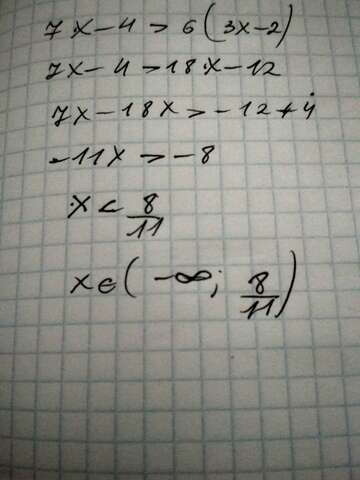 7x-4>6(3x-2)
7x-4>18x-12
7x-18x>-12+4
-11x>-8
x<8/11
x∈(-∞; 8/11)